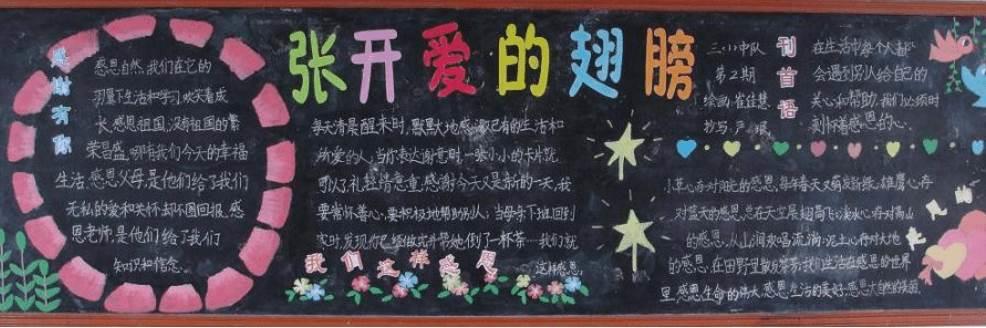 感谢有你
感恩自然,我们在它的
羽翼下生活和学习,欢笑着成
长,感恩祖国,没有祖国的繁
荣昌盛,哪有我们今天的幸福
生活,感恩父母,是他们给了我们
无私的爱和关怀却不图回报,感
恩老师,是他们给了我们
知识和信念。
张开爱的翅膀
每天清晨醒来时,默默地感谢已有的生活和
所爱的人;当你表达谢意时,一张小小的卡片就
可以了,礼轻情意重,感谢今天又是新的一天,我
要常怀善心,要积极地帮助别人;当母亲下班回到
家时,发现你已经做好并帮她倒了一杯茶…我们就
这样感恩。
我们这样感恩
三(1)中队
第2期
绘画:崔佳慧
抄写:严
刊首语
在生活中每个人都
会遇到别人给自己的
关心和帮助,我们必须时
刻怀着感恩的心。
小草心存对阳光的感恩,每年春天又萌发新绿,雄鹰心存
对蓝天的感恩,总在天空展翅高飞;溪水心存对高山
的感恩,从山涧欢唱流淌;泥土心存对大地
的感恩,在田野里散发芬芳;我们生活在感恩的世界
里,感恩生命的伟大,感恩生活的美好,感恩大自然的美丽。